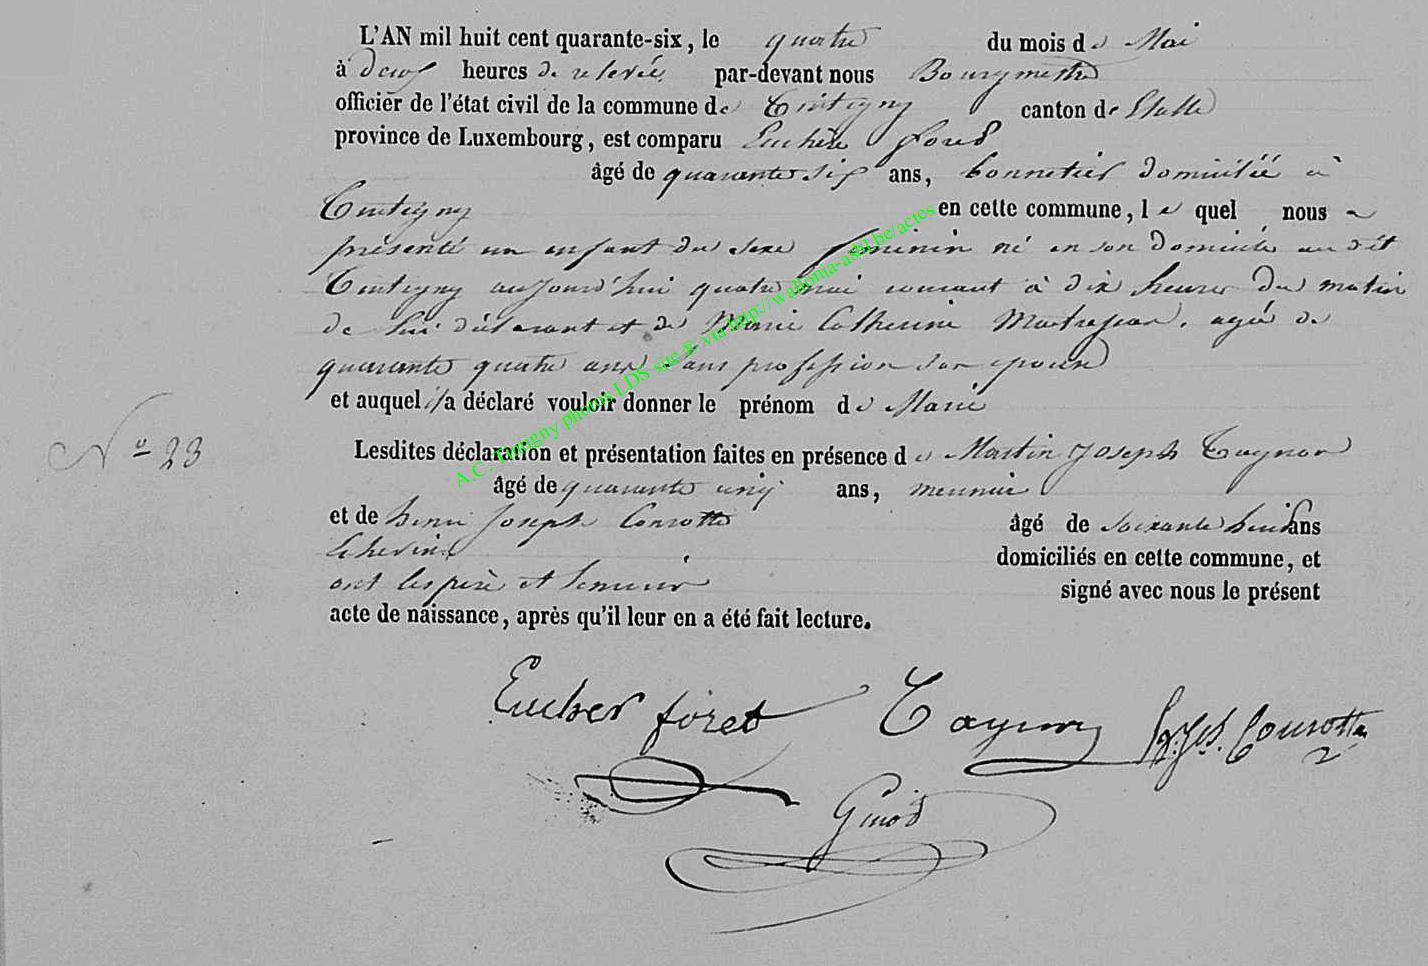 L'AN mil huit cent quarante-six, le quatre du mois de Mai
à deux heures de relevée, par-devant nous Bourgmestre
officier de l'état civil de la commune de Tintigny canton de Etalle
province de Luxembourg, est comparu Euchère
âgé de quarante six ans, bonnetier domicilié à
Tintigny en cette commune, le quel nous a
présenté un enfant du sexe féminin né en son domicile au dit
Tintigny aujourd'hui quatre mai courant à dix heures du matin
de lui déclarant et de Marie Catherine agée de
quarante quatre ans sans profession son épouse
et auquel il a déclaré vouloir donner le prénom de Marie
N° 23
Lesdites déclaration et présentation faites en présence de Martin Joseph
âgé de quarante cinq ans, meunier
et de henri Joseph Conrotte âgé de soixante huit ans
Echevin domiciliés en cette commune, et
ont les père et témoins signé avec nous le présent
acte de naissance, après qu'il leur en a été fait lecture.
Eucher foret
Conrotte
A.C. Tintigny photos LDS site ® via http://wallonia-asbl.be/actes